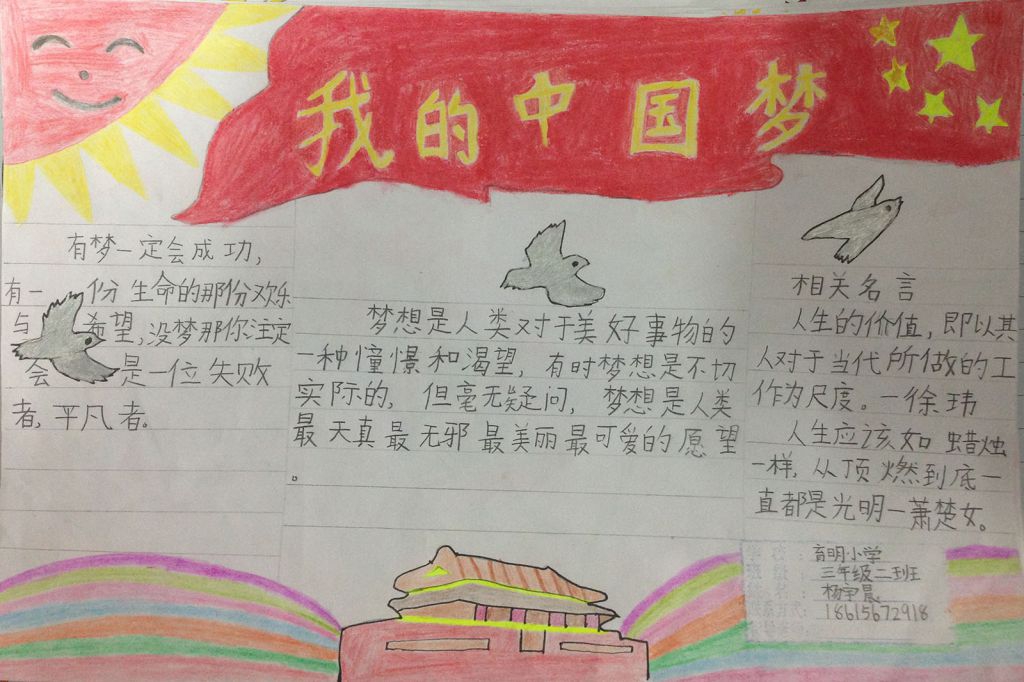 我的中国梦
有梦一定会成功,
有一份生命的那份欢乐
与希望,没梦那你注定
会是一位失败
者,平凡者。
梦想是人类对于美好事物的
一种憧憬和渴望,有时梦想是不切
实际的,但毫无疑问,梦想是人类
最天真最无邪最美丽最可爱的愿望
。
相关名言
人生的价值,即以其
人对于当代所做的工
作为尺度。一徐玮
人生应该如蜡烛
一样,从顶燃到底一
直都是光明一萧楚女。
育明小学
三年级二班
杨宇晨
18615672918